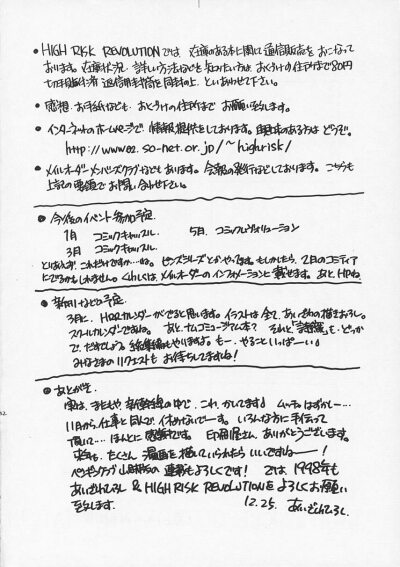 ● HIGH RISK REVOLUTIONでは、在庫のある本に関して通信販売をおこなって
おります。在庫状況、詳しい方法などを知りたい方は、おくづけの住所まで80円
切手同封の上、といあわせて下さい。
● 感想、お手紙なども、おくづけの住所まで お願い致します。
● インターネットのホームページで 情報提供をしております。興味のある方は どうぞ。
http://www02.so-net.or.jp/~highrisk/
● メイルオーダーメンバーズクラブなどもあります。会報の発行などしております。こちらも
上記の要領でお問い合わせ下さい。
● 今後のイベント参加予定
1月 コミックキャッスル 5月 コミックレヴォリューション
3月 コミックキャッスル
とりあえず、これだけですか…ね。もしかしたら、2月のコミティア
にでるかもしれません。くわしくは、メイルオーダーのインフォメーションに載せます。あと、HPね
● 新刊などの予定
3月に、H2Rカレンダーができると思います。イラストは全て、あいざわの描きおろし。
スクールカレンダーですね。
で、だすでしょう。総集編もやりますよ。もー、やることいっぱーい♪
みなさまのリクエストも お待ちしてますね!
● あとがき
実は、またもや、新幹線の中で、これ、かいてます♪ ムッチャはずかしー…
11月から仕事と同人で、休めないでーす。いろんな方に手伝って
頂いて…ほんとに感謝です。印刷屋さん、ありがとうございます。
来年も、たくさん 漫画を描いていられたら いいですねー!
の連載もよろしくです! では、1998年も
あいざわひろし & HIGH RISK REVOLUTIONを よろしくお願い
致します。 12.25. あいざわひろし